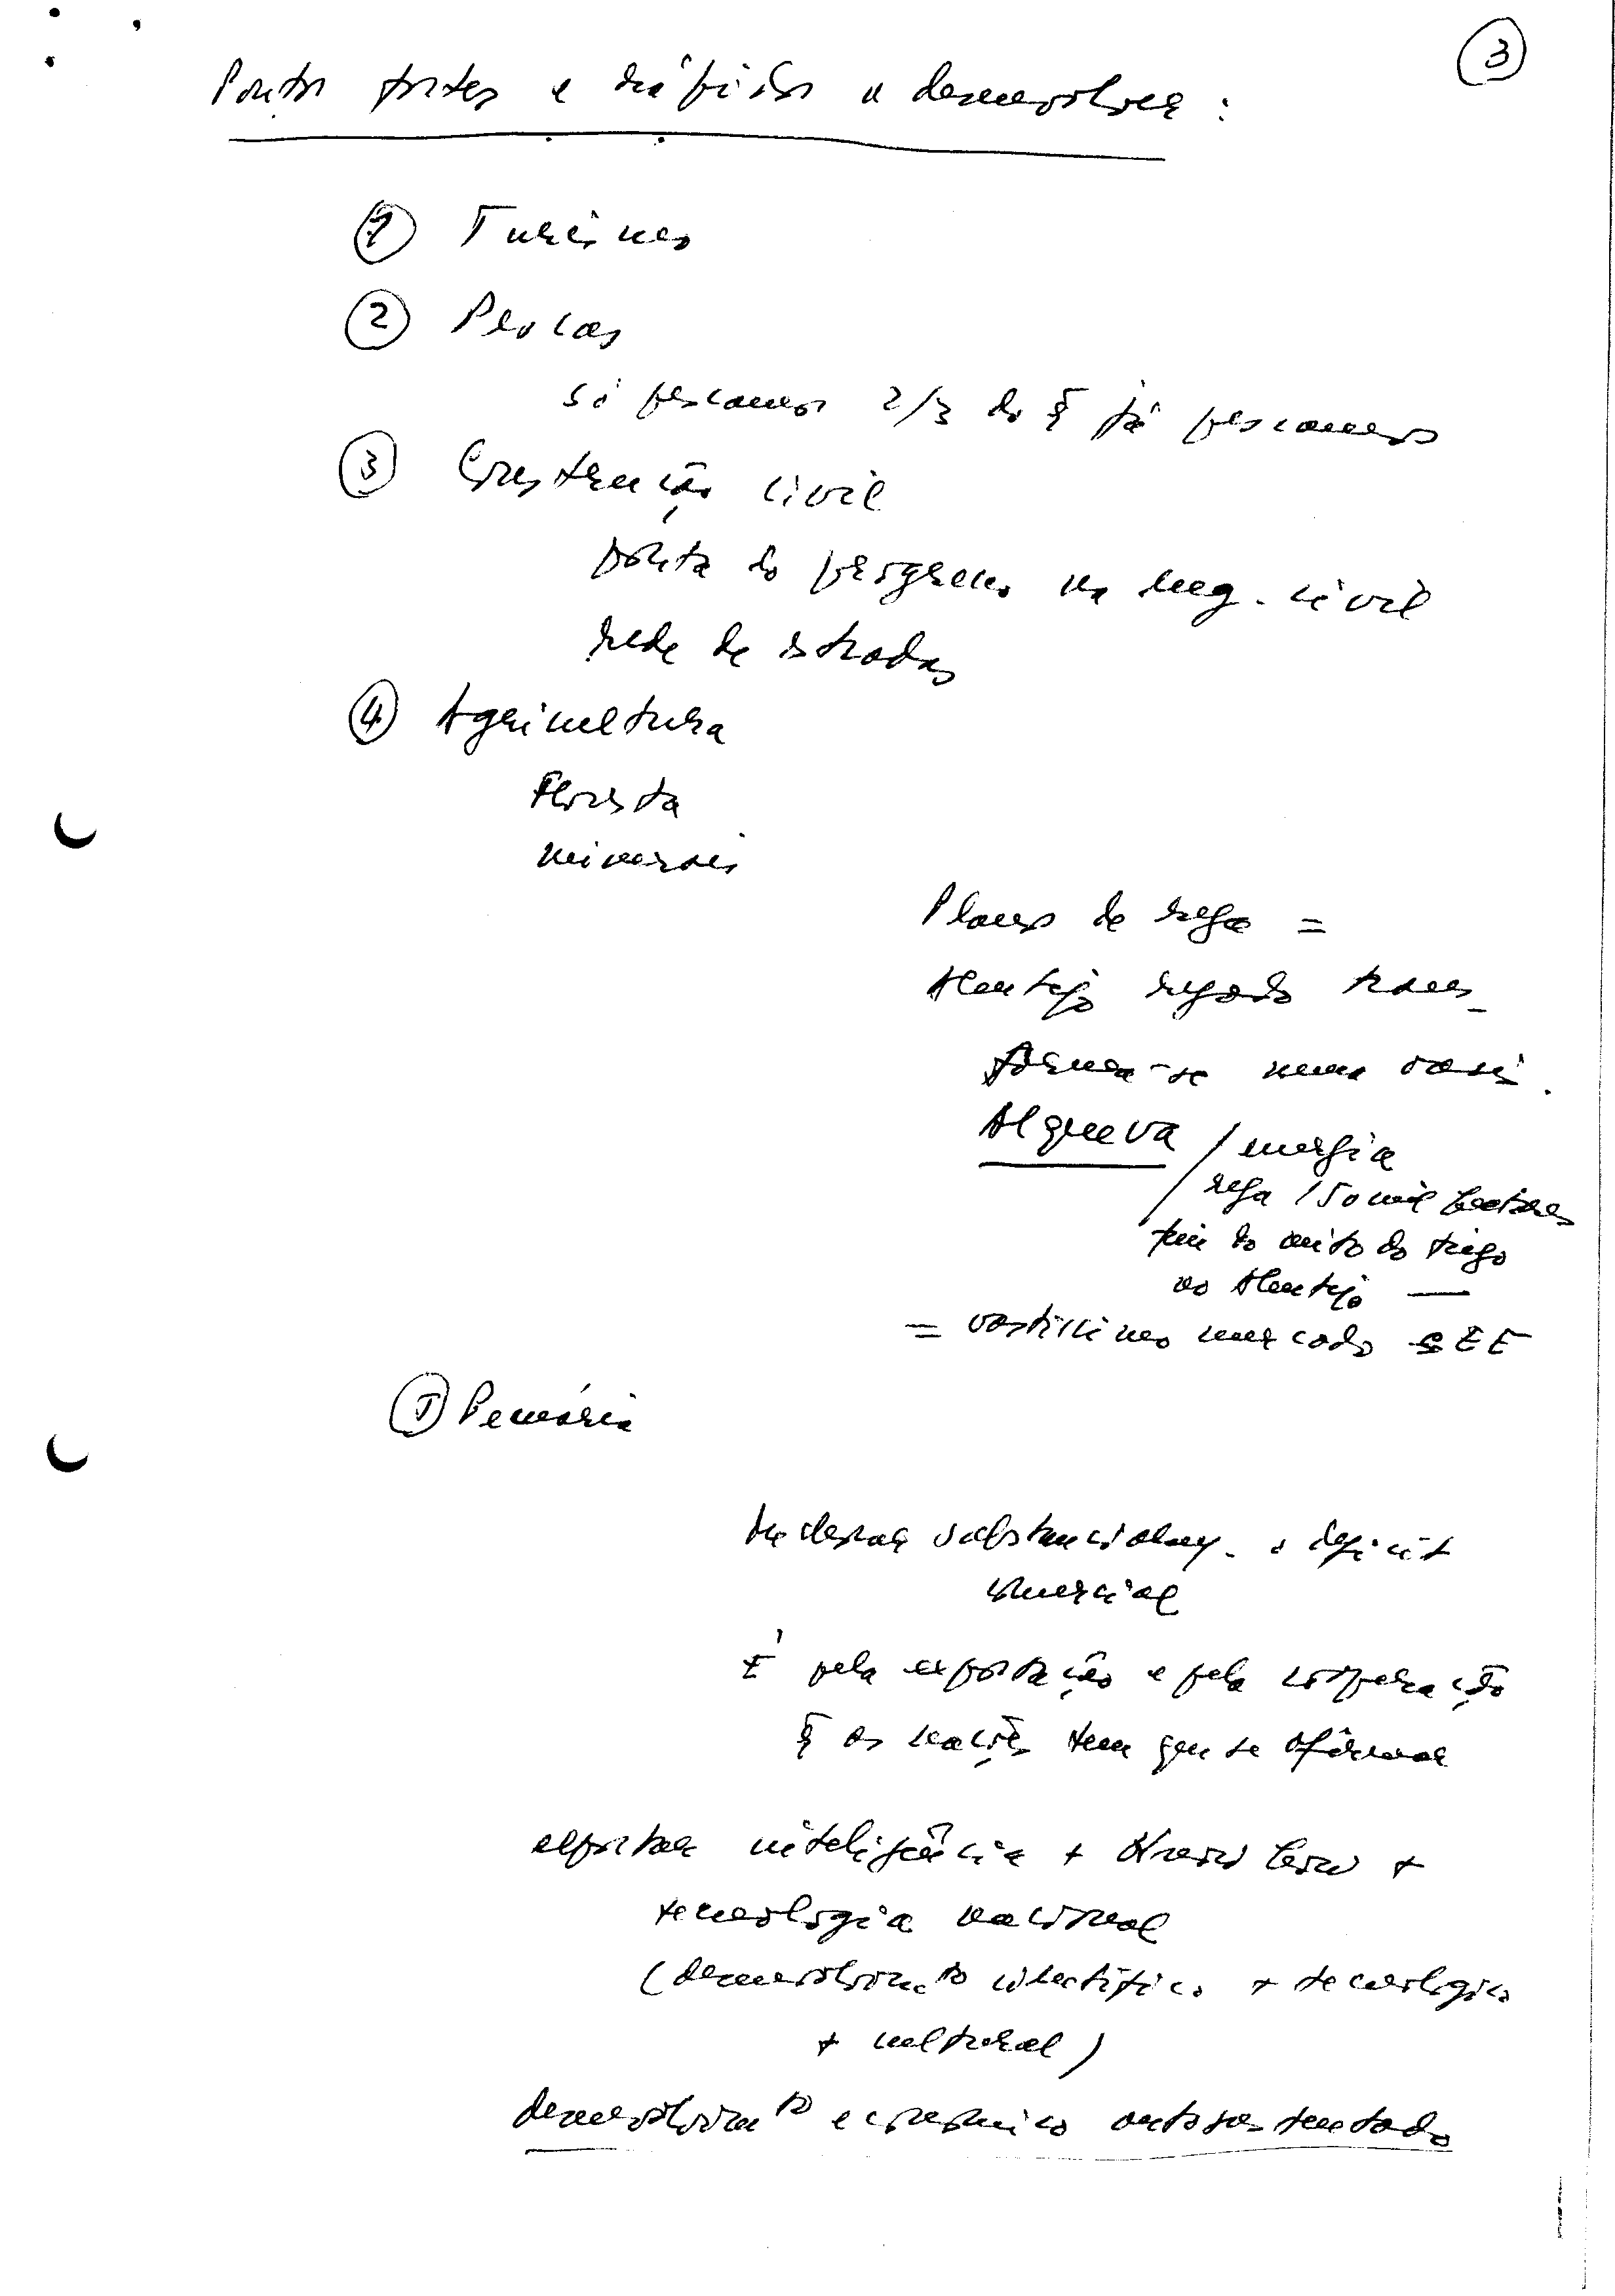 3
Pontos fortes e a desenvolver :
1 Turismo
2 Pescas
só pescamos 2/3 do q̃ já pescamos
3 Construção civil
ponta do progresso na eng. civil
rede de estradas
4 Agricultura
Floresta
minerais
Planos de rega =
Alentejo regado trans-
forma-se num oasis.
Alqueva / energia
/ rega 150 mil hectares
fim do mito do trigo
no Alentejo —
= vastissimo mercado CEE
5 Pecuária
substancialm. o deficit
comercial
É pela exportação e pela cooperação
q̃ as nações tem que se afirmar
exportar inteligência + Know how +
tecnologia nacional
(desenvolvimto cientifico + tecnologico
+ cultural)
desenvolvimto económico autosustentado